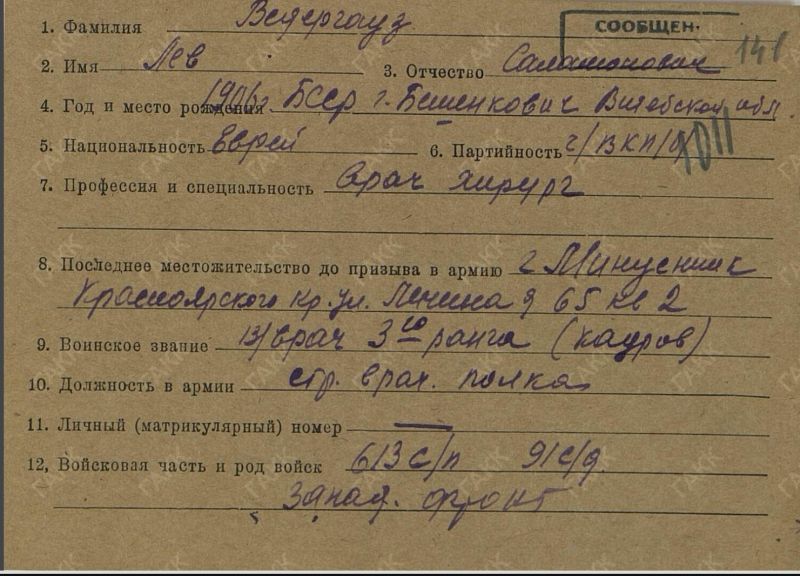 СООБЩЕН.
141
1. Фамилия Вейергауз
2. Имя Лев 3. Отчество Саламонович
4. Год и место рождения 1906г. БССР г. Бешенкович Витебской обл.
5. Национальность Еврей 6. Партийность ч/ВКП/б
7. Профессия и специальность Врач хирург
8. Последнее местожительство до призыва в армию г Минусинск
Красноярского кр. ул. Ленина д 65 кв 2
9. Воинское звание в/врач 3го ранга (кадров)
10. Должность в армии ст. врач. полка
11. Личный (матрикулярный) номер —
12, Войсковая часть и род войск 613 с/п 91 с/д.
Запад. фронт